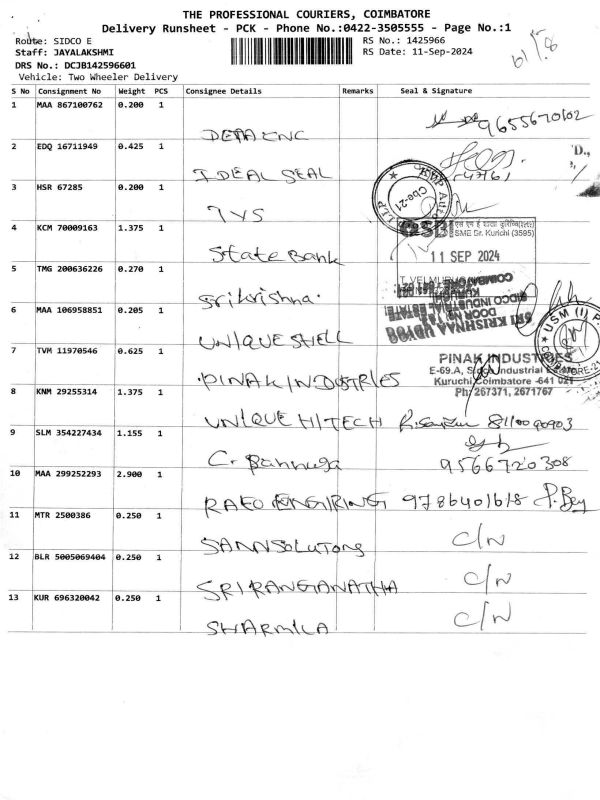 THE PROFESSIONAL COURIERS, COIMBATORE
Delivery Runsheet - PCK - Phone No.:0422-3505555 - Page No.:1
Route: SIDCO E
RS No.: 1425966
Staff: JAYALAKSHMI
RS Date: 11-Sep-2024
DRS No.: DCJB142596601
Vehicle: Two Wheeler Delivery
S No Consignment No Weight PCS Consignee Details Remarks Seal & Signature
1 MAA 867100762 0.200 1
9655670102
2 EDQ 16711949 0.425 1
IDEAL SEAL
3 HSR 67285 0.200 1
TVS
Cbe-21
4 KCM 70009163 1.375 1
State Bank
SBI
SME Br. Kurichi (3595)
11 SEP 2024
5 TMG 200636226 0.270 1
Srikrishna.
SRI KRISHNAA UDYOG
6 MAA 106958851 0.205 1
UNIQUE SHELL
7 TVM 11970546 0.625 1
PINAK INDUSTRIES
PINAK INDUSTRIES
E-69.A, Sidco Industrial Estate
Kuruchi Coimbatore -641 021
Ph: 267371, 2671767
8 KNM 29255314 1.375 1
UNIQUE HITECH
9 SLM 354227434 1.155 1
9566720308
10 MAA 299252293 2.900 1
9786401618
11 MTR 2500386 0.250 1
SANNSOLUTONS C/N
12 BLR 5005069404 0.250 1
SRI RANGANATHA C/N
13 KUR 696320042 0.250 1
SHARMILA C/N